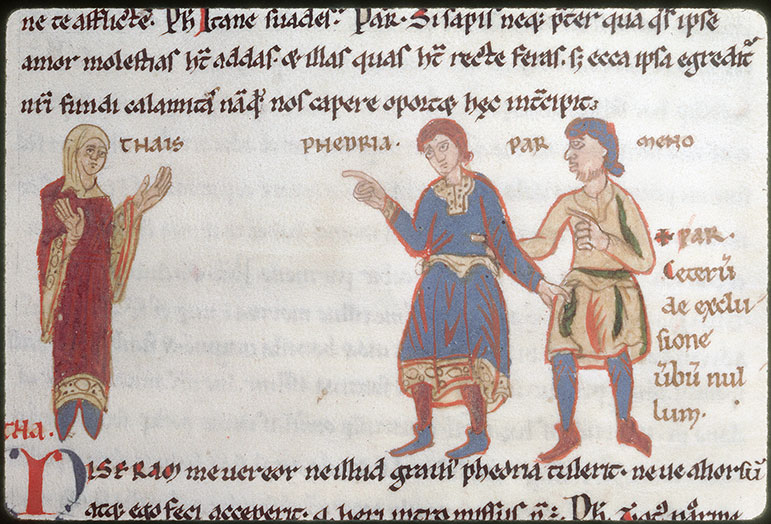 ne te afflictes. Ph Itane suades. Par. Si sapis neq; pter qua qs ipse
amor molestias ht addas. & illas quas ht recte feras. s; ecca ipsa egredit
nri fundi calamita nāq; nos capere oportet hec intcipit;
THAIS PHEDRIA. PAR MENO
PAR.
Ceterū
de exclu
sione
ūbū nul
lum.
THA.
MISERAM me vereor ne illud gravi' phedria tulerit. neve aliorsū
atq; ego feci acceperit. q heri intro missus n ē: Ph